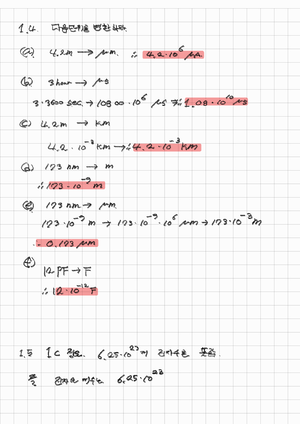 1.4. 다음단위를 변환하라.
(a) 4.2m → μm. ∴ 4.2·10⁶ μm
(b) 3hour → μs
3·3600 sec. → 10800·10⁶ μs 1.08·10¹⁰ μs
(c) 4.2m → km
4.2·10⁻³ km → ∴ 4.2·10⁻³ km
(d) 173 nm → m
∴ 173·10⁻⁹ m
(e) 173 nm → μm
173·10⁻⁹ m → 173·10⁻⁹·10⁶ μm → 173·10⁻³ m
∴ 0.173 μm
(f)
12 pF → F
∴ 12·10⁻¹² F
1.5 1C 6.25·10²³
6.25·10²³